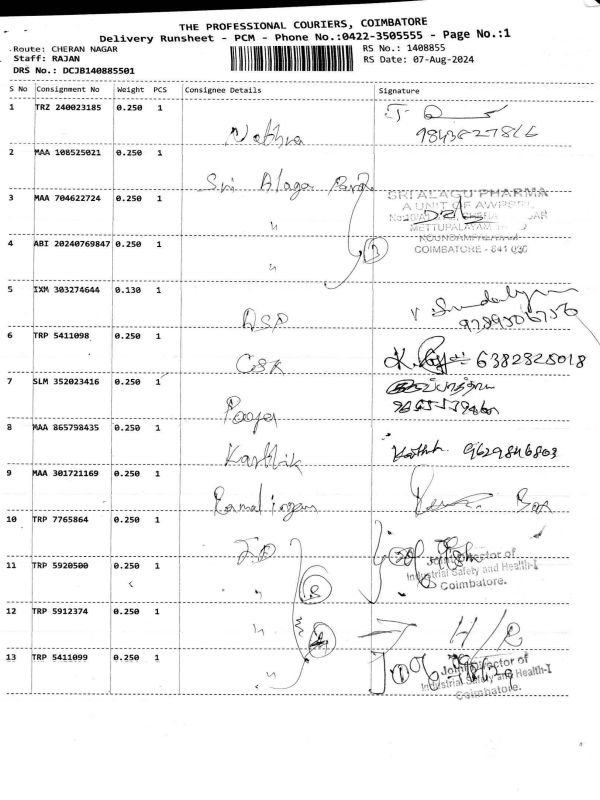 THE PROFESSIONAL COURIERS, COIMBATORE
Delivery Runsheet - PCM - Phone No.:0422-3505555 - Page No.:1
Route: CHERAN NAGAR
RS No.: 1408855
Staff: RAJAN
RS Date: 07-Aug-2024
DRS No.: DCJB140885501
S No Consignment No Weight PCS Consignee Details Signature
1 TRZ 240023185 0.250 1
Nethra
2 MAA 108525021 0.250 1
Sri Alagu
3 MAA 704622724 0.250 1
SRI ALAGU PHARMA
A UNIT OF
METTUPALAYAM
4 ABI 20240769847 0.250 1
COIMBATORE - 641 030
5 IXM 303274644 0.130 1
DSP
6 TRP 5411098 0.250 1
GSK
K. 6382828018
7 SLM 352023416 0.250 1
Pooja
8 MAA 865798435 0.250 1
Karthik
9629846803
9 MAA 301721169 0.250 1
Ramalingam
10 TRP 7765864 0.250 1
11 TRP 5920500 0.250 1
Joint Director of
Industrial Safety and Health-I
Coimbatore.
12 TRP 5912374 0.250 1
H/R
13 TRP 5411099 0.250 1
Joint Director of
Industrial Safety and Health-I
Coimbatore.